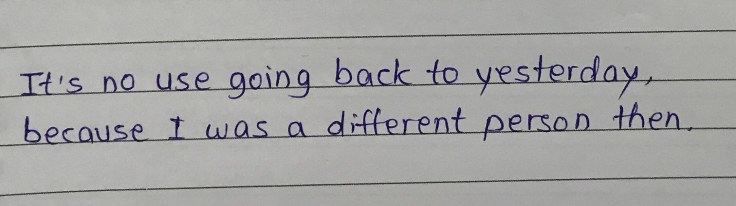 It's no use going back to yesterday,
because I was a different person then.